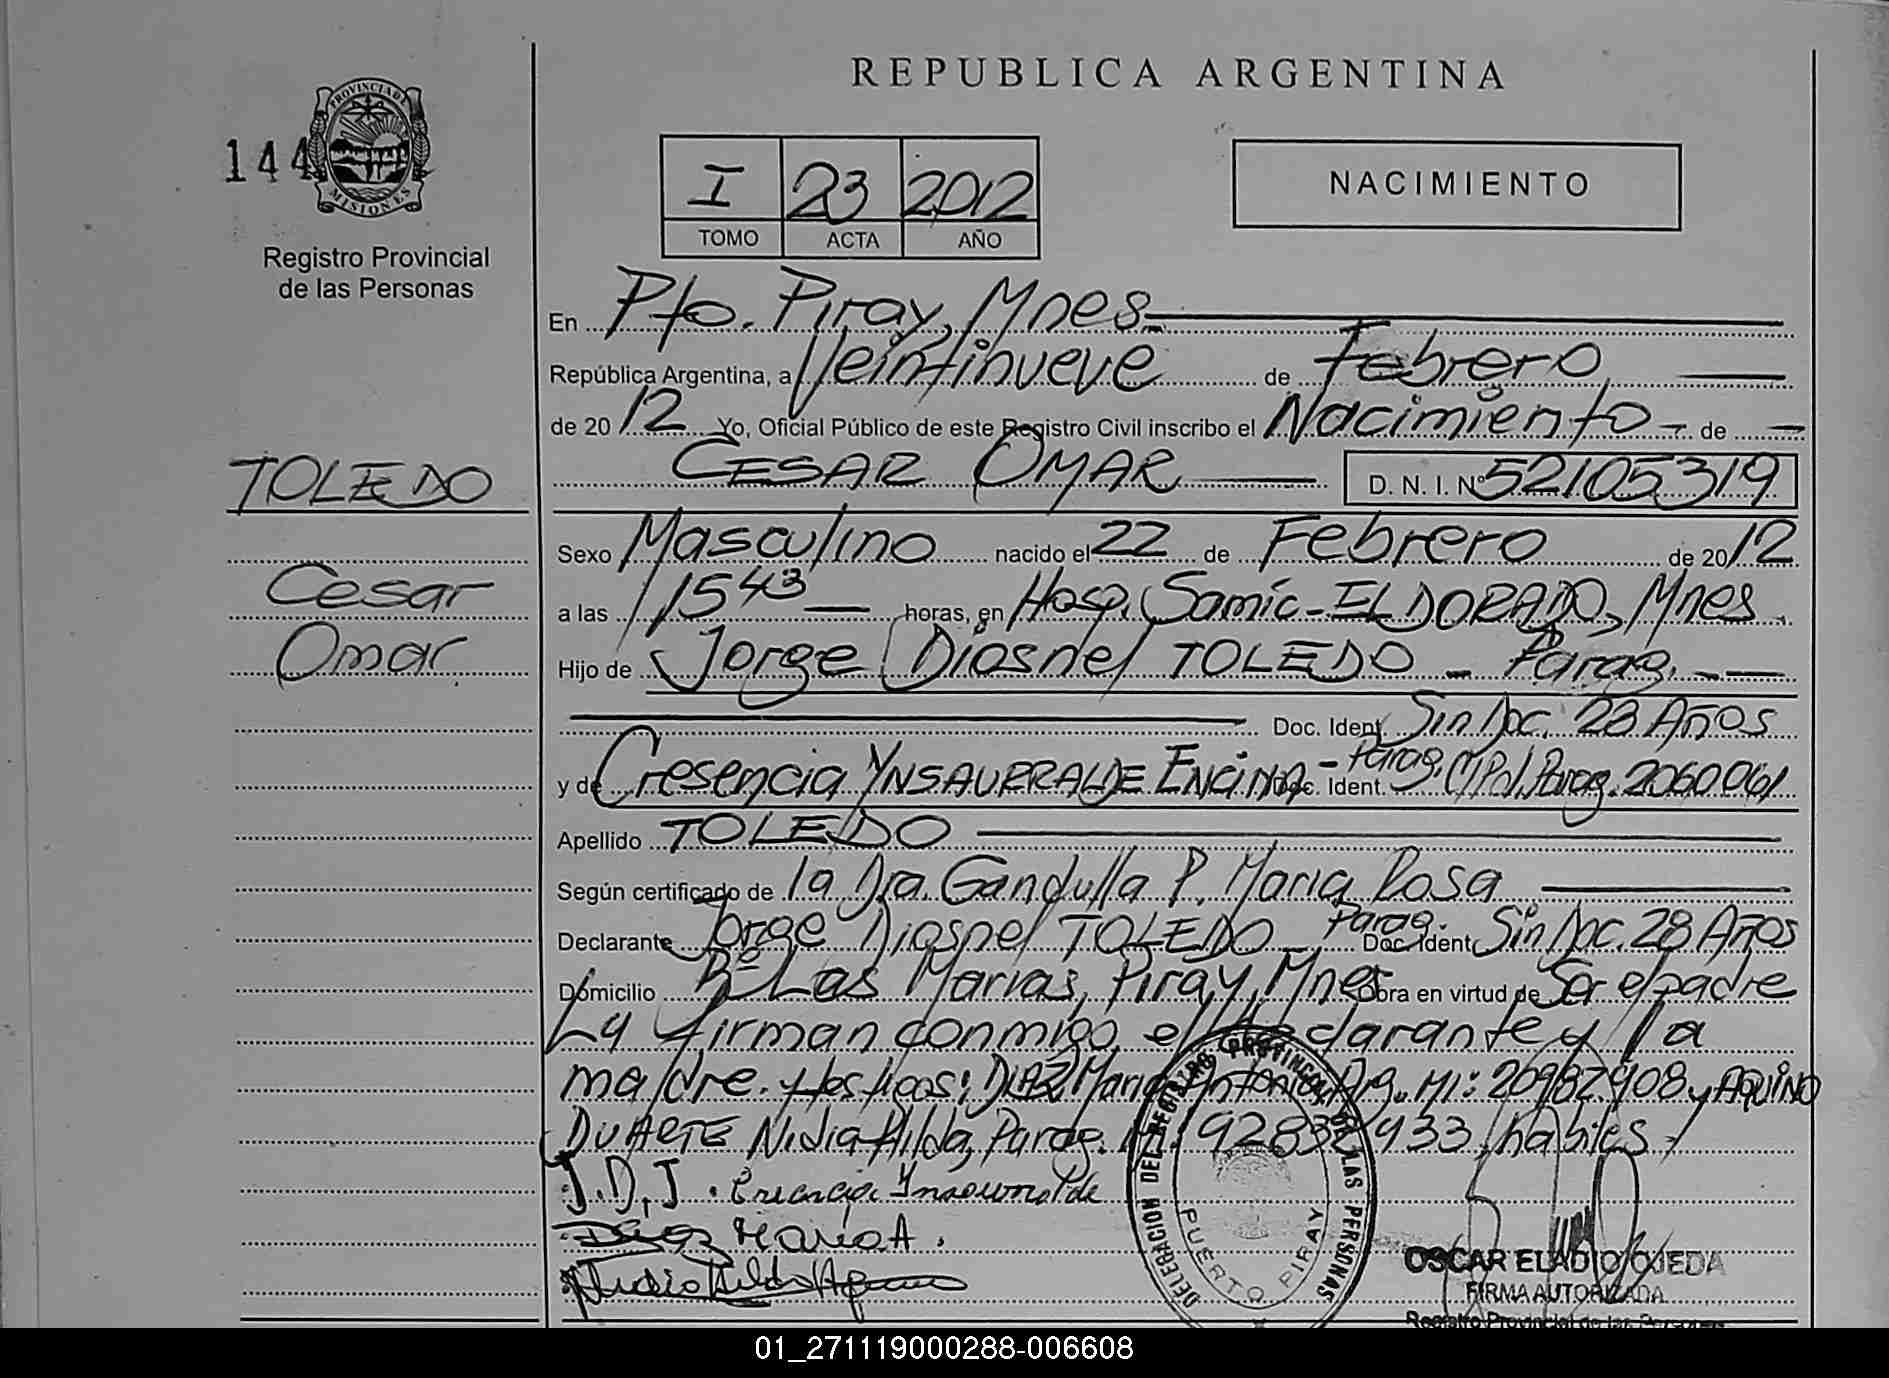 REPUBLICA ARGENTINA
PROVINCIA DE
MISIONES
144
Registro Provincial
de las Personas
I 23 2012
TOMO ACTA AÑO
NACIMIENTO
En Pto. Piray, Mnes
República Argentina, a Veintinueve de Febrero
de 2012 Yo, Oficial Público de este Registro Civil inscribo el Nacimiento de
CESAR OMAR D. N. I. Nº 52105319
TOLEDO
Cesar
Omar
Sexo Masculino nacido el 22 de Febrero de 2012
a las 1543 horas, en Hosp. Samic - ELDORADO, Mnes
Hijo de Jorge Diosnel TOLEDO - Parag. -
Doc. Ident. Sin Doc. 28 Años
y de Cresencia YNSAURRALDE ENCINA - Parag. Doc. Ident. C.I.Pol.Parag. 2060061
Apellido TOLEDO
Según certificado de la Dra. Gandulla P. Maria Rosa
Declarante Jorge Diosnel TOLEDO - Parag. Doc. Ident. Sin Doc. 28 Años
Domicilio Bº Las Marias, Piray, Mnes Obra en virtud de Ser el padre
La firman conmigo el declarante y la
madre. y testigos: DIAZ Maria Antonia Arg. MI: 20987908 y AQUINO
DUARTE Nidia Hilda, Parag. 92832933, habiles
J.D.T. Cresencia Ynsaurralde
Diaz Maria A.
Nidia Hilda Aquino
DELEGACION DEL REGISTRO PROVINCIAL DE LAS PERSONAS
PUERTO PIRAY
OSCAR ELADIO OJEDA
FIRMA AUTORIZADA
Registro Provincial de las Personas
01_271119000288-006608